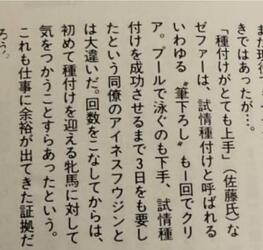 きではあったが…。
「種付けがとても上手」(佐藤氏)な
ゼファーは、試情種付けと呼ばれる
いわゆる〝筆下ろし〟も1回でクリ
ア。プールで泳ぐのも下手、試情種
付けを成功させるまで3日をも要し
たという同僚のアイネスフウジンと
は大違いだ。回数をこなしてからは、
初めて種付けを迎える牝馬に対して
気をつかうことすらあったという。
これも仕事に余裕が出てきた証拠だ
ろう。